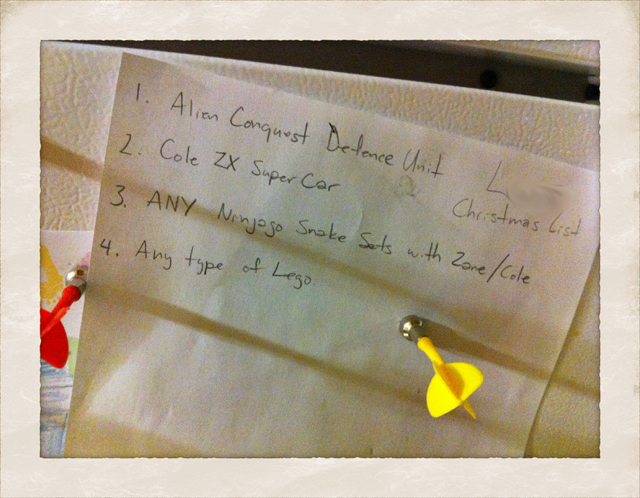 1. Alien Conquest Defence Unit
2. Cole ZX Super Car
3. ANY Ninjago Snake Sets with Zane/Cole
4. Any type of Lego
L
Christmas List